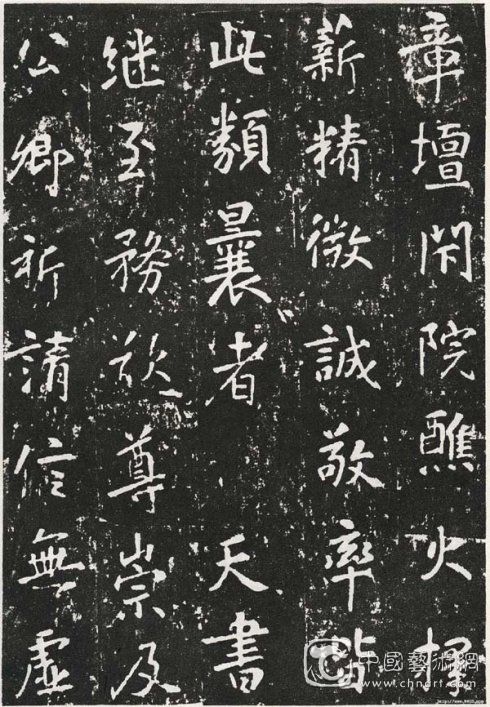 章壇閑院醮火擇
薪精微誠敬率皆
此類曩者 天書
継至務欲尊崇及
公卿祈請信無虛
中國藝術網
www.chnart.com